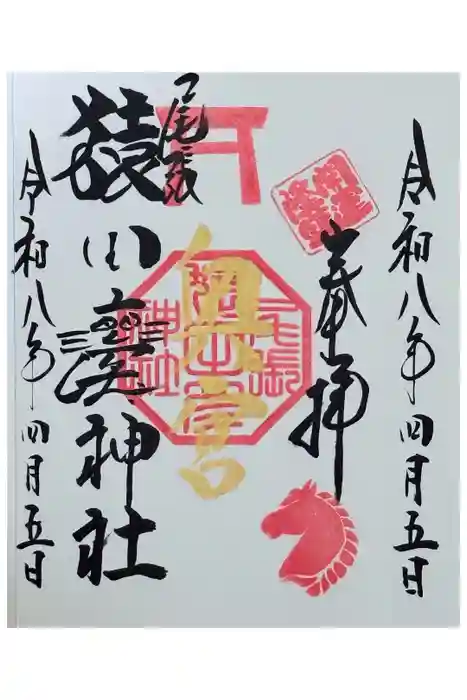 令和八年四月五日
奉拝
奥宮
尾張
猿田彦神社
令和八年四月五日